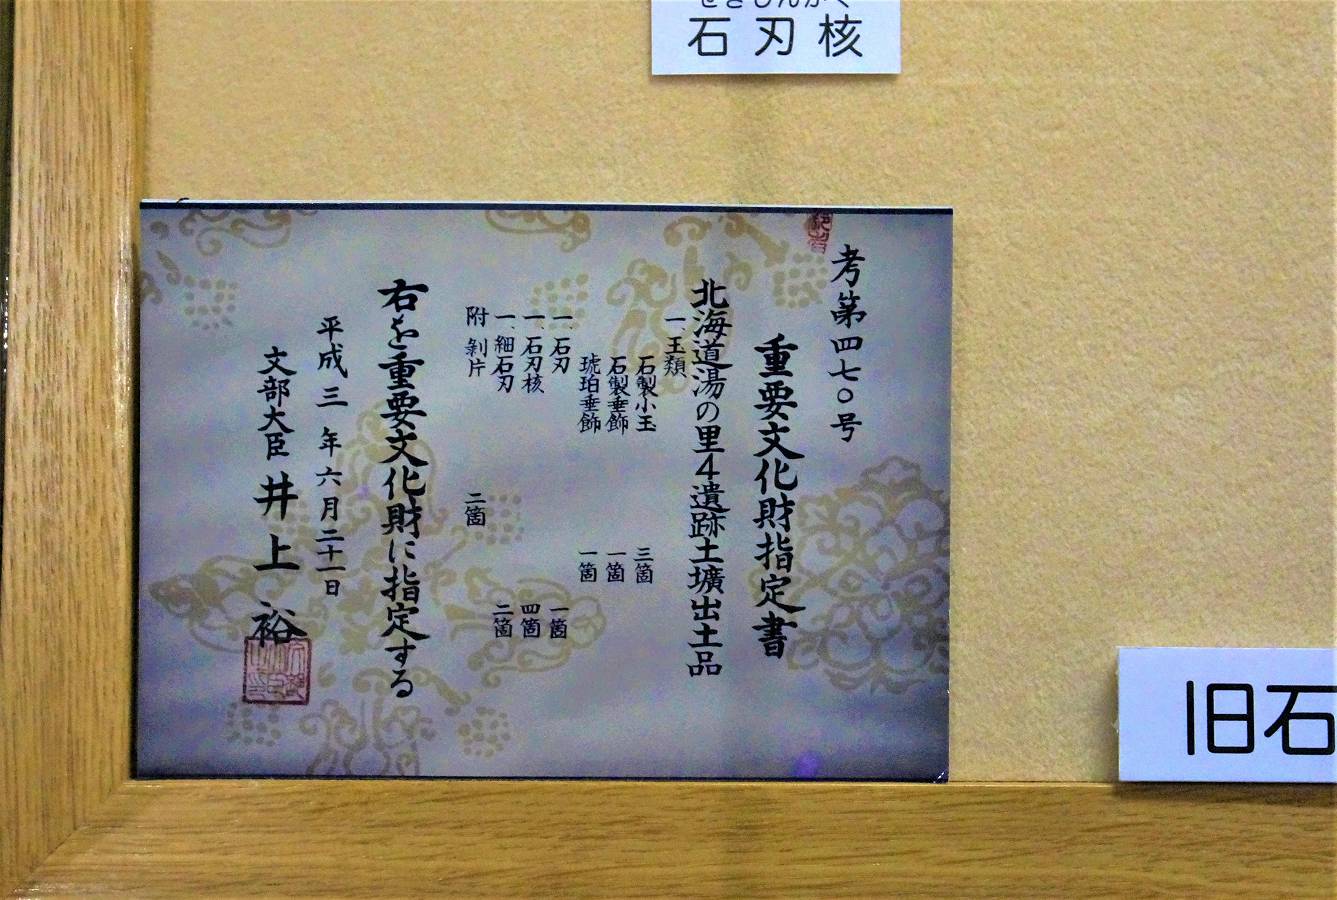 せきじんかく
石刃核
考第四七〇号
重要文化財指定書
北海道湯の里4遺跡土壙出土品
一、玉類
石製小玉 三箇
石製垂飾 一箇
琥珀垂飾 一箇
一、石刃 一箇
一、石刃核 四箇
一、細石刃 二箇
附 剝片 二箇
右を重要文化財に指定する
平成三年六月二十一日
文部大臣 井上 裕
旧石